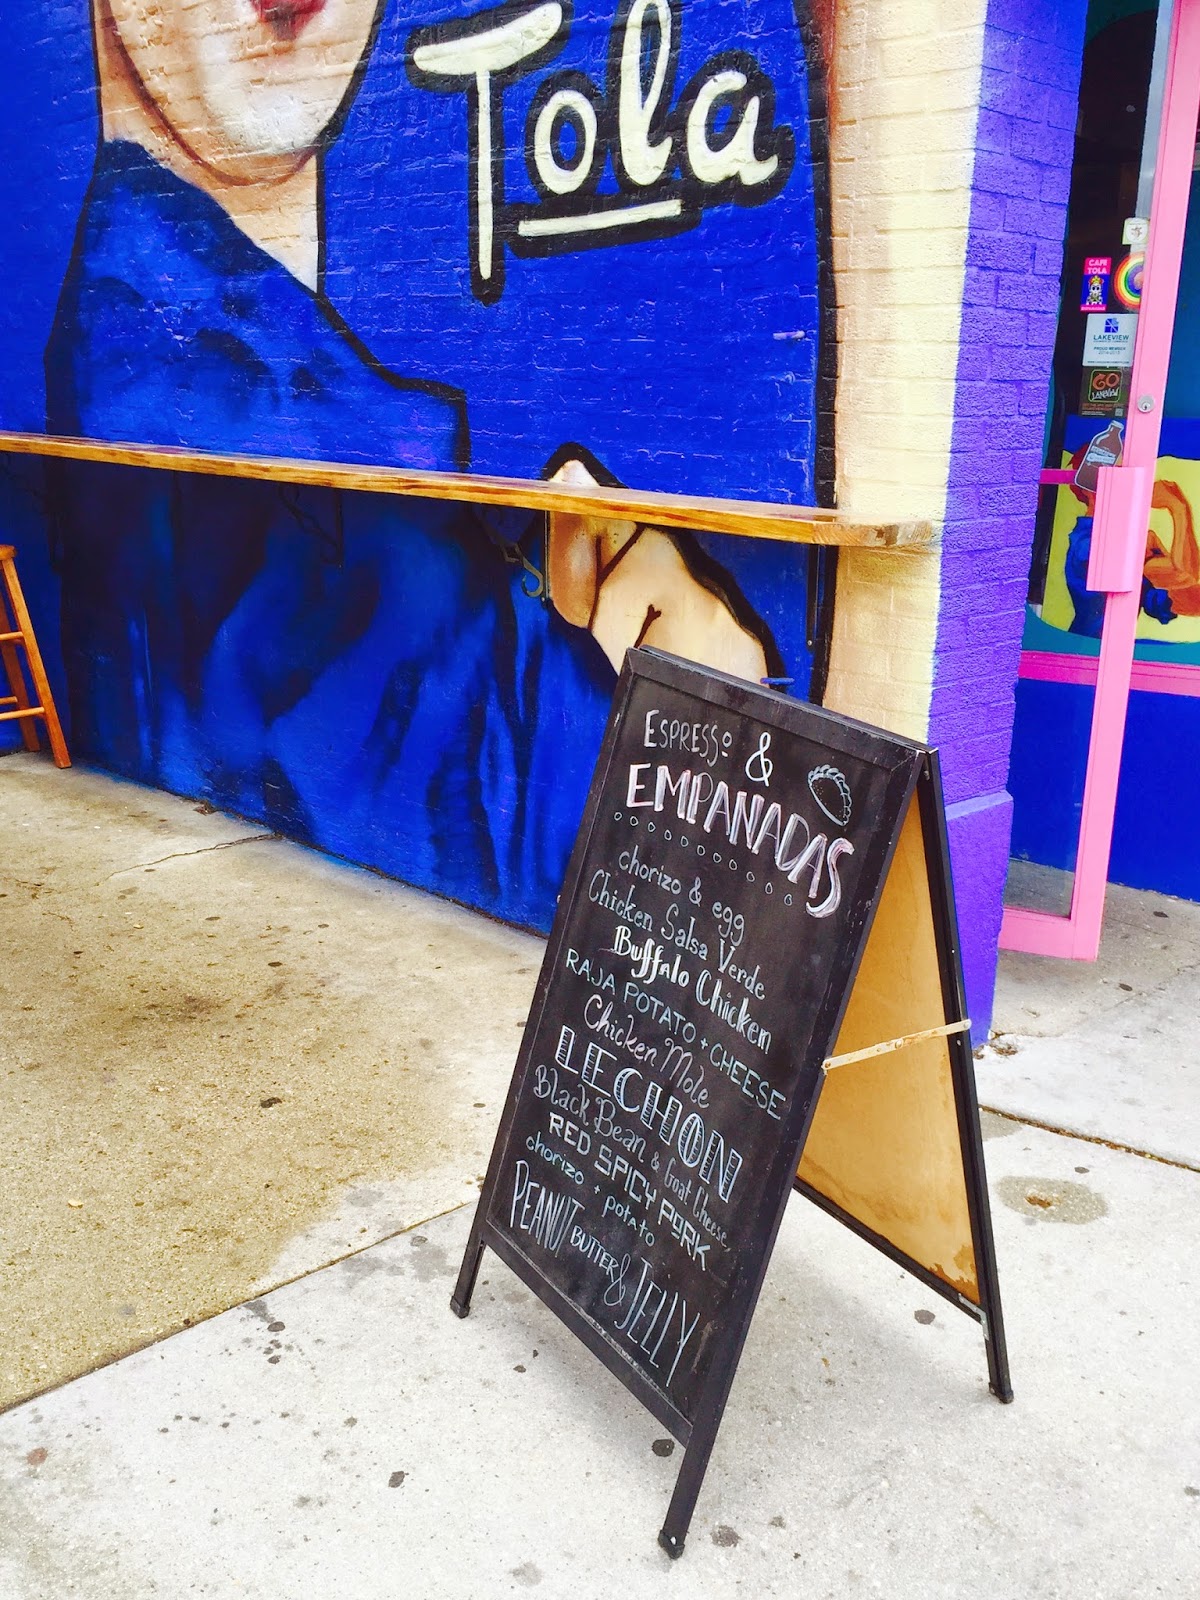 Tola
CAFE
TOLA
LAKEVIEW
PROUD MEMBER
GO
LAKEVIEW
ESPRESSO &
EMPANADAS
chorizo & egg
Chicken Salsa Verde
Buffalo Chicken
RAJA POTATO + CHEESE
Chicken Mole
LECHON
Black Bean & Goat Cheese
RED SPICY PORK
chorizo + potato
PEANUT BUTTER & JELLY